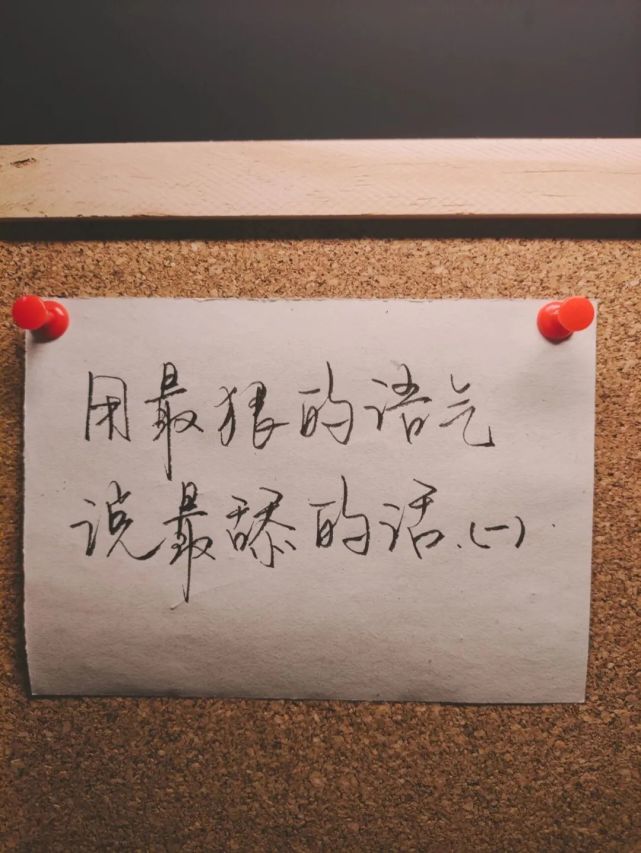 用最狠的语气
说最舔的话.(一)